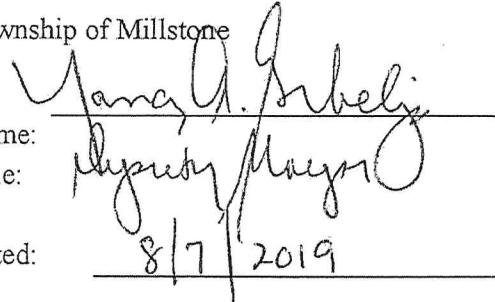 wnship of Millstone
Nancy A. Grbelja
me:
Deputy Mayor
e:
ted: 8/7/2019